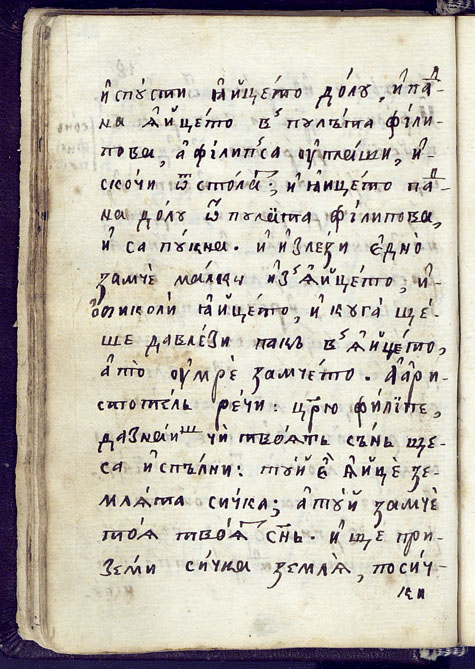 и҆спꙋсти ꙗ҆йце́то до́лꙋ, и҆ па́д-
на ꙗ҆йце́то въ пꙋлѣ́та фі́ли-
пова, а҆ фі́липъса ᲂу҆пла́ши, и҆-
скочи ѿ стола̀; и҆ ꙗ҆йцето па́д-
на долꙋ ѿ пꙋла́та фі́липова,
и҆ са пꙋ́кна. и҆ и҆злѣ́зи є҆дно̀
замчѐ малки и҆зъ ꙗ҆йцето, и҆-
ѻ҆пиколи̑ ꙗ҆йцето, и҆ кꙋга̀ ще́-
ше давлѣ́зи пакъ въ ꙗ҆йцѐто,
а҆ то̀ ᲂу҆мрѐ замчето. А҆ а҆ри-
стоте́ль ре́чи: цр҃ю фили́пе,
дазнаиш чи твоꙗтъ съ́нь ще-
са и҆спъ́лни: тꙋй є҆ ꙗ҆йцѐ зе-
млѧ́та сичка; а҆ тꙋ́й замчѐ
тоꙗ̀ твоꙗ̀ сн҃ь. и҆ ще при-
зе́ми си́чка землѧ̀, посич-
ки